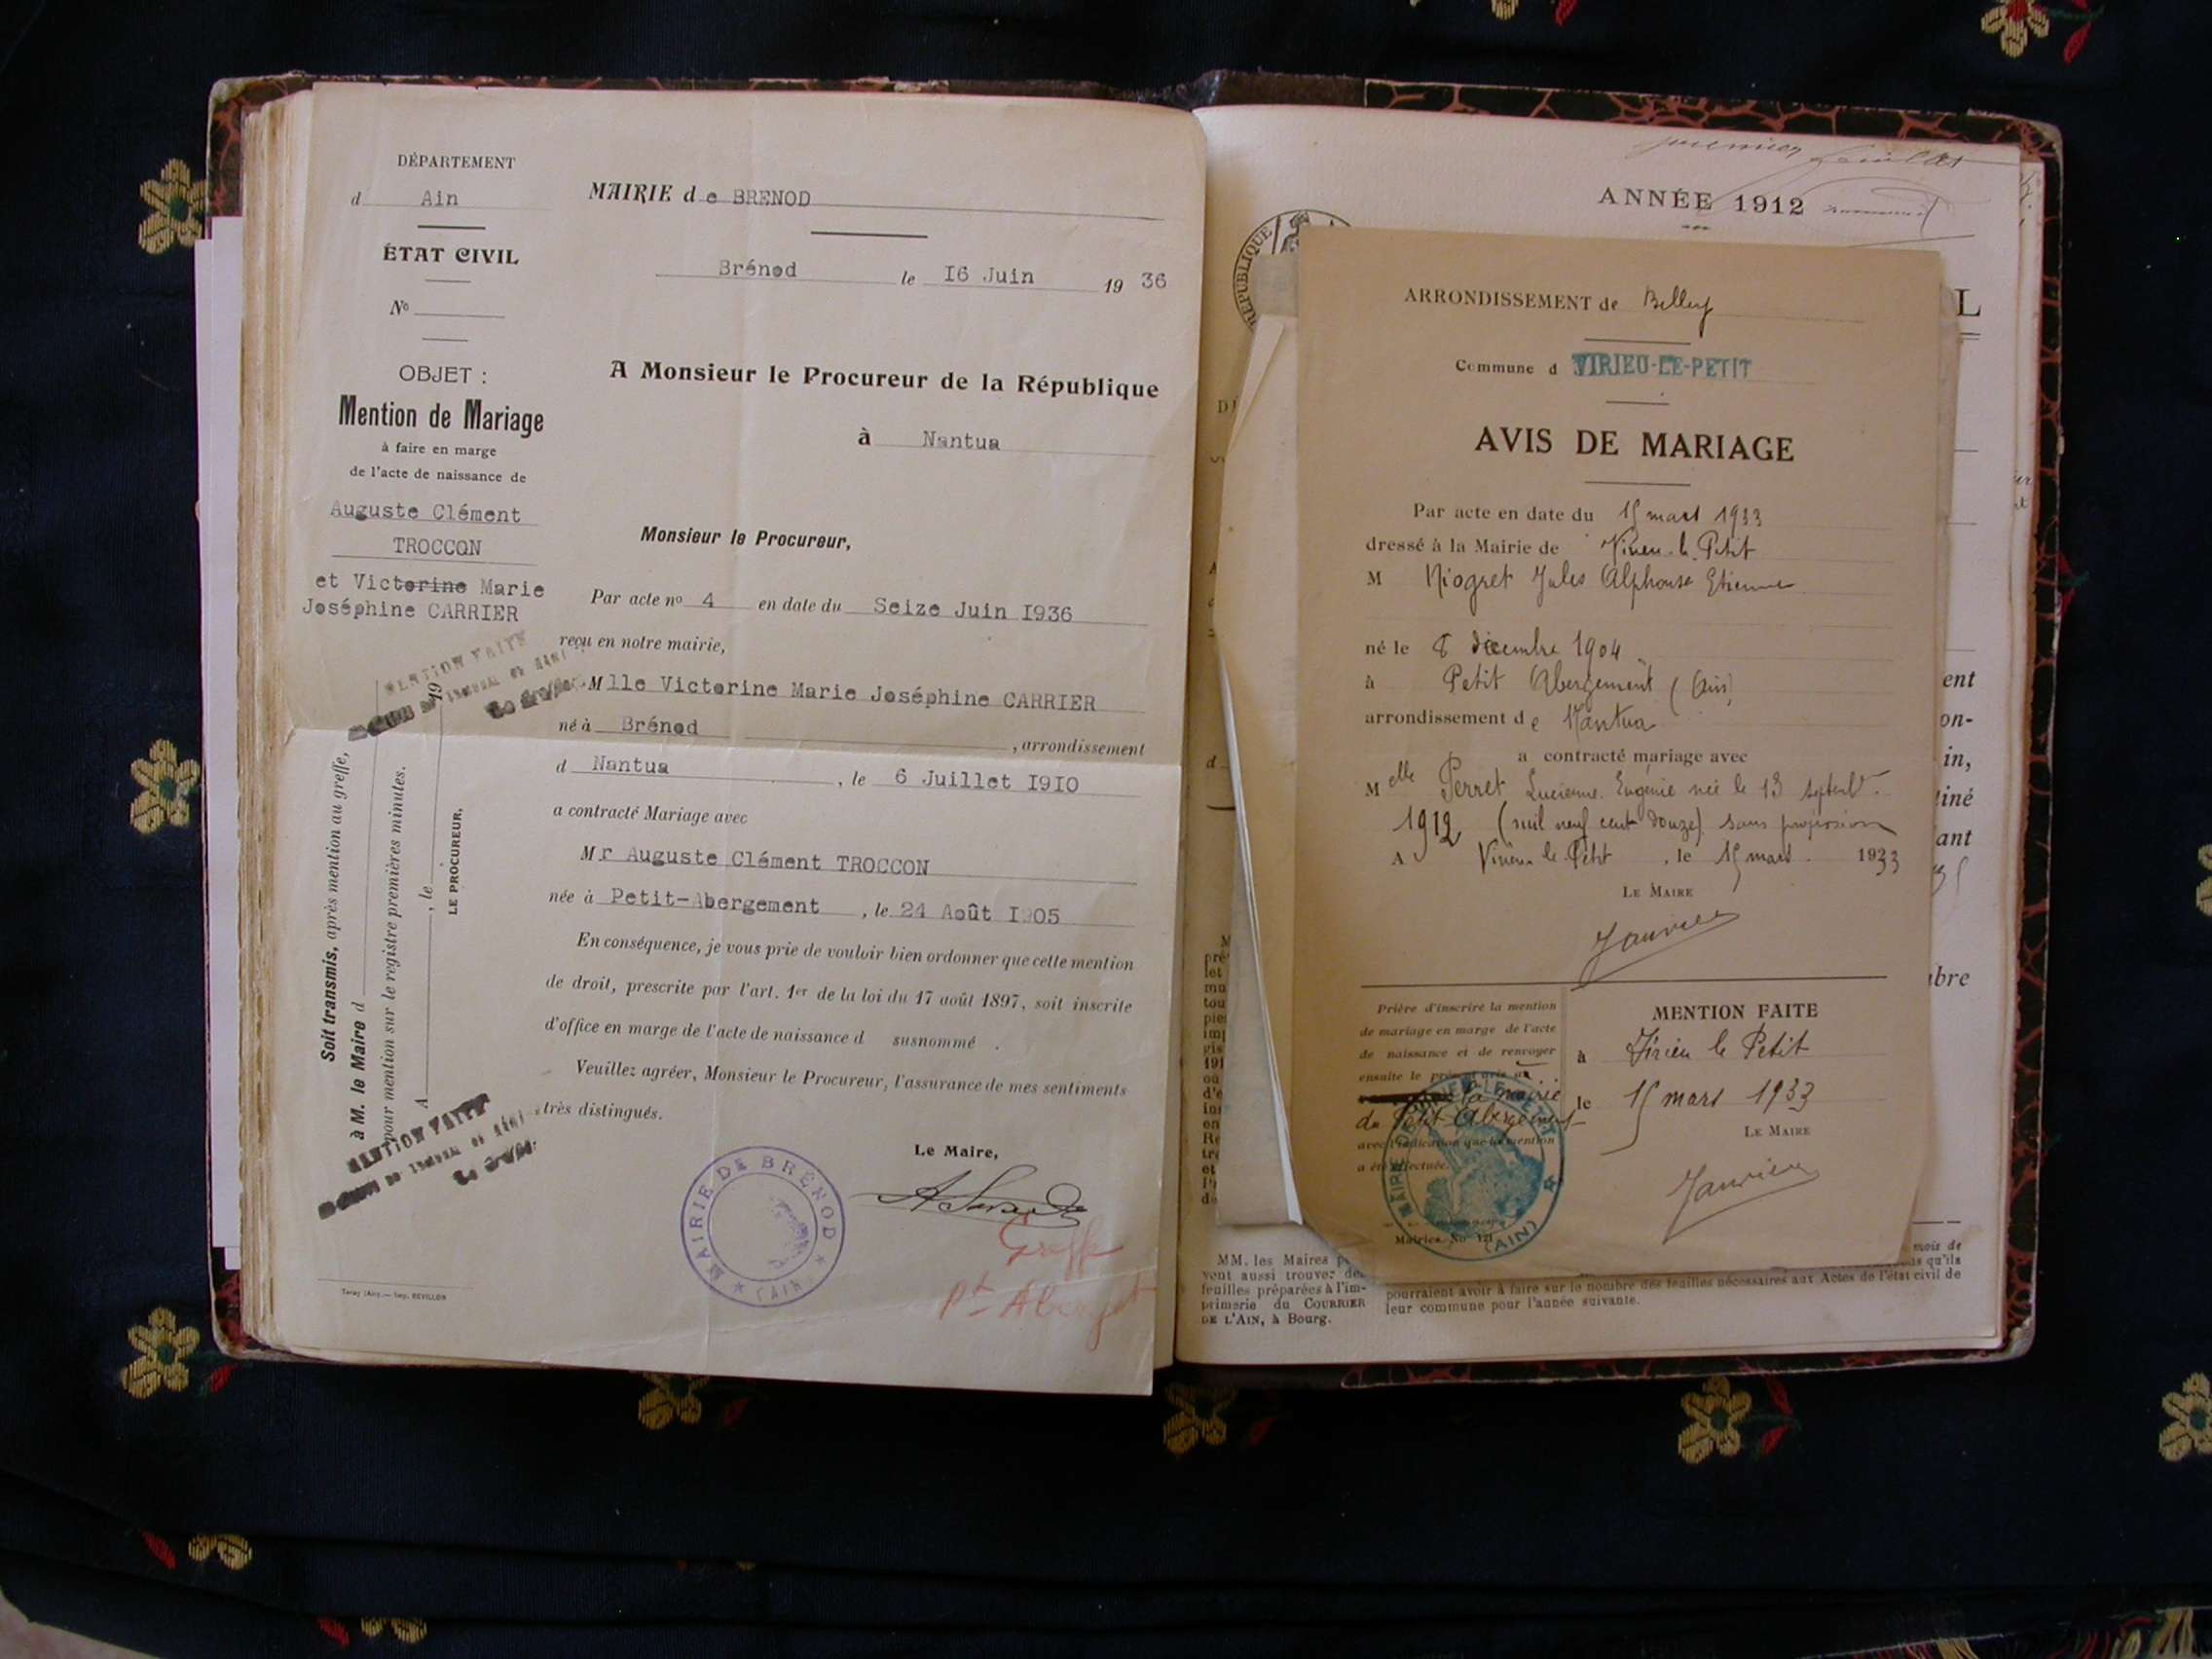 DÉPARTEMENT
d Ain
ÉTAT CIVIL
No
OBJET :
Mention de Mariage
à faire en marge
de l'acte de naissance de
Auguste Clément
TROCCON
et Victorine Marie
Joséphine CARRIER
MENTION FAITE
Soit transmis, après mention au greffe,
à M. le Maire d
pour mention sur le registre premières minutes.
A , le 19
LE PROCUREUR,
MENTION FAITE
MAIRIE de BRENOD
Brénod le I6 Juin 19 36
A Monsieur le Procureur de la République
à Nantua
Monsieur le Procureur,
Par acte no 4 en date du Seize Juin I936
reçu en notre mairie,
Mlle Victorine Marie Joséphine CARRIER
né à Brénod , arrondissement
d Nantua , le 6 Juillet I9I0
a contracté Mariage avec
Mr Auguste Clément TROCCON
née à Petit-Abergement , le 24 Août I905
En conséquence, je vous prie de vouloir bien ordonner que cette mention
de droit, prescrite par l'art. 1er de la loi du 17 août 1897, soit inscrite
d'office en marge de l'acte de naissance d susnommé .
Veuillez agréer, Monsieur le Procureur, l'assurance de mes sentiments
très distingués.
Le Maire,
MAIRIE DE BRÉNOD
(AIN)
Greffe
ANNÉE 1912
RÉPUBLIQUE
L
ARRONDISSEMENT de Belley
Commune d VIRIEU-LE-PETIT
AVIS DE MARIAGE
Par acte en date du 15 mars 1933
dressé à la Mairie de Virieu-le-Petit
M Niogret Jules Alphonse Etienne
né le 8 décembre 1904
à Petit Abergement (Ain)
arrondissement de Nantua
a contracté mariage avec
Melle Perret Lucienne Eugénie née le 13 septembre
1912 (mil neuf cent douze) sans profession
A Virieu le Petit , le 15 mars 1933
LE MAIRE
Prière d'inscrire la mention
de mariage en marge de l'acte
de naissance et de renvoyer
ensuite le présent avis à
la mairie
du Petit Abergement
avec l'indication que la mention
a été effectuée.
MENTION FAITE
à Virieu le Petit
le 15 mars 1933
LE MAIRE
MAIRIE VIRIEU-LE-PETIT
(AIN)
Mairies No 121
ent
on-
in,
iné
ant
bre
MM. les Maires
vent aussi trouver des
feuilles préparées à l'im-
primerie du COURRIER
DE L'AIN, à Bourg.
mois de
qu'ils
pourraient avoir à faire sur le nombre des feuilles nécessaires aux Actes de l'état civil de
leur commune pour l'année suivante.